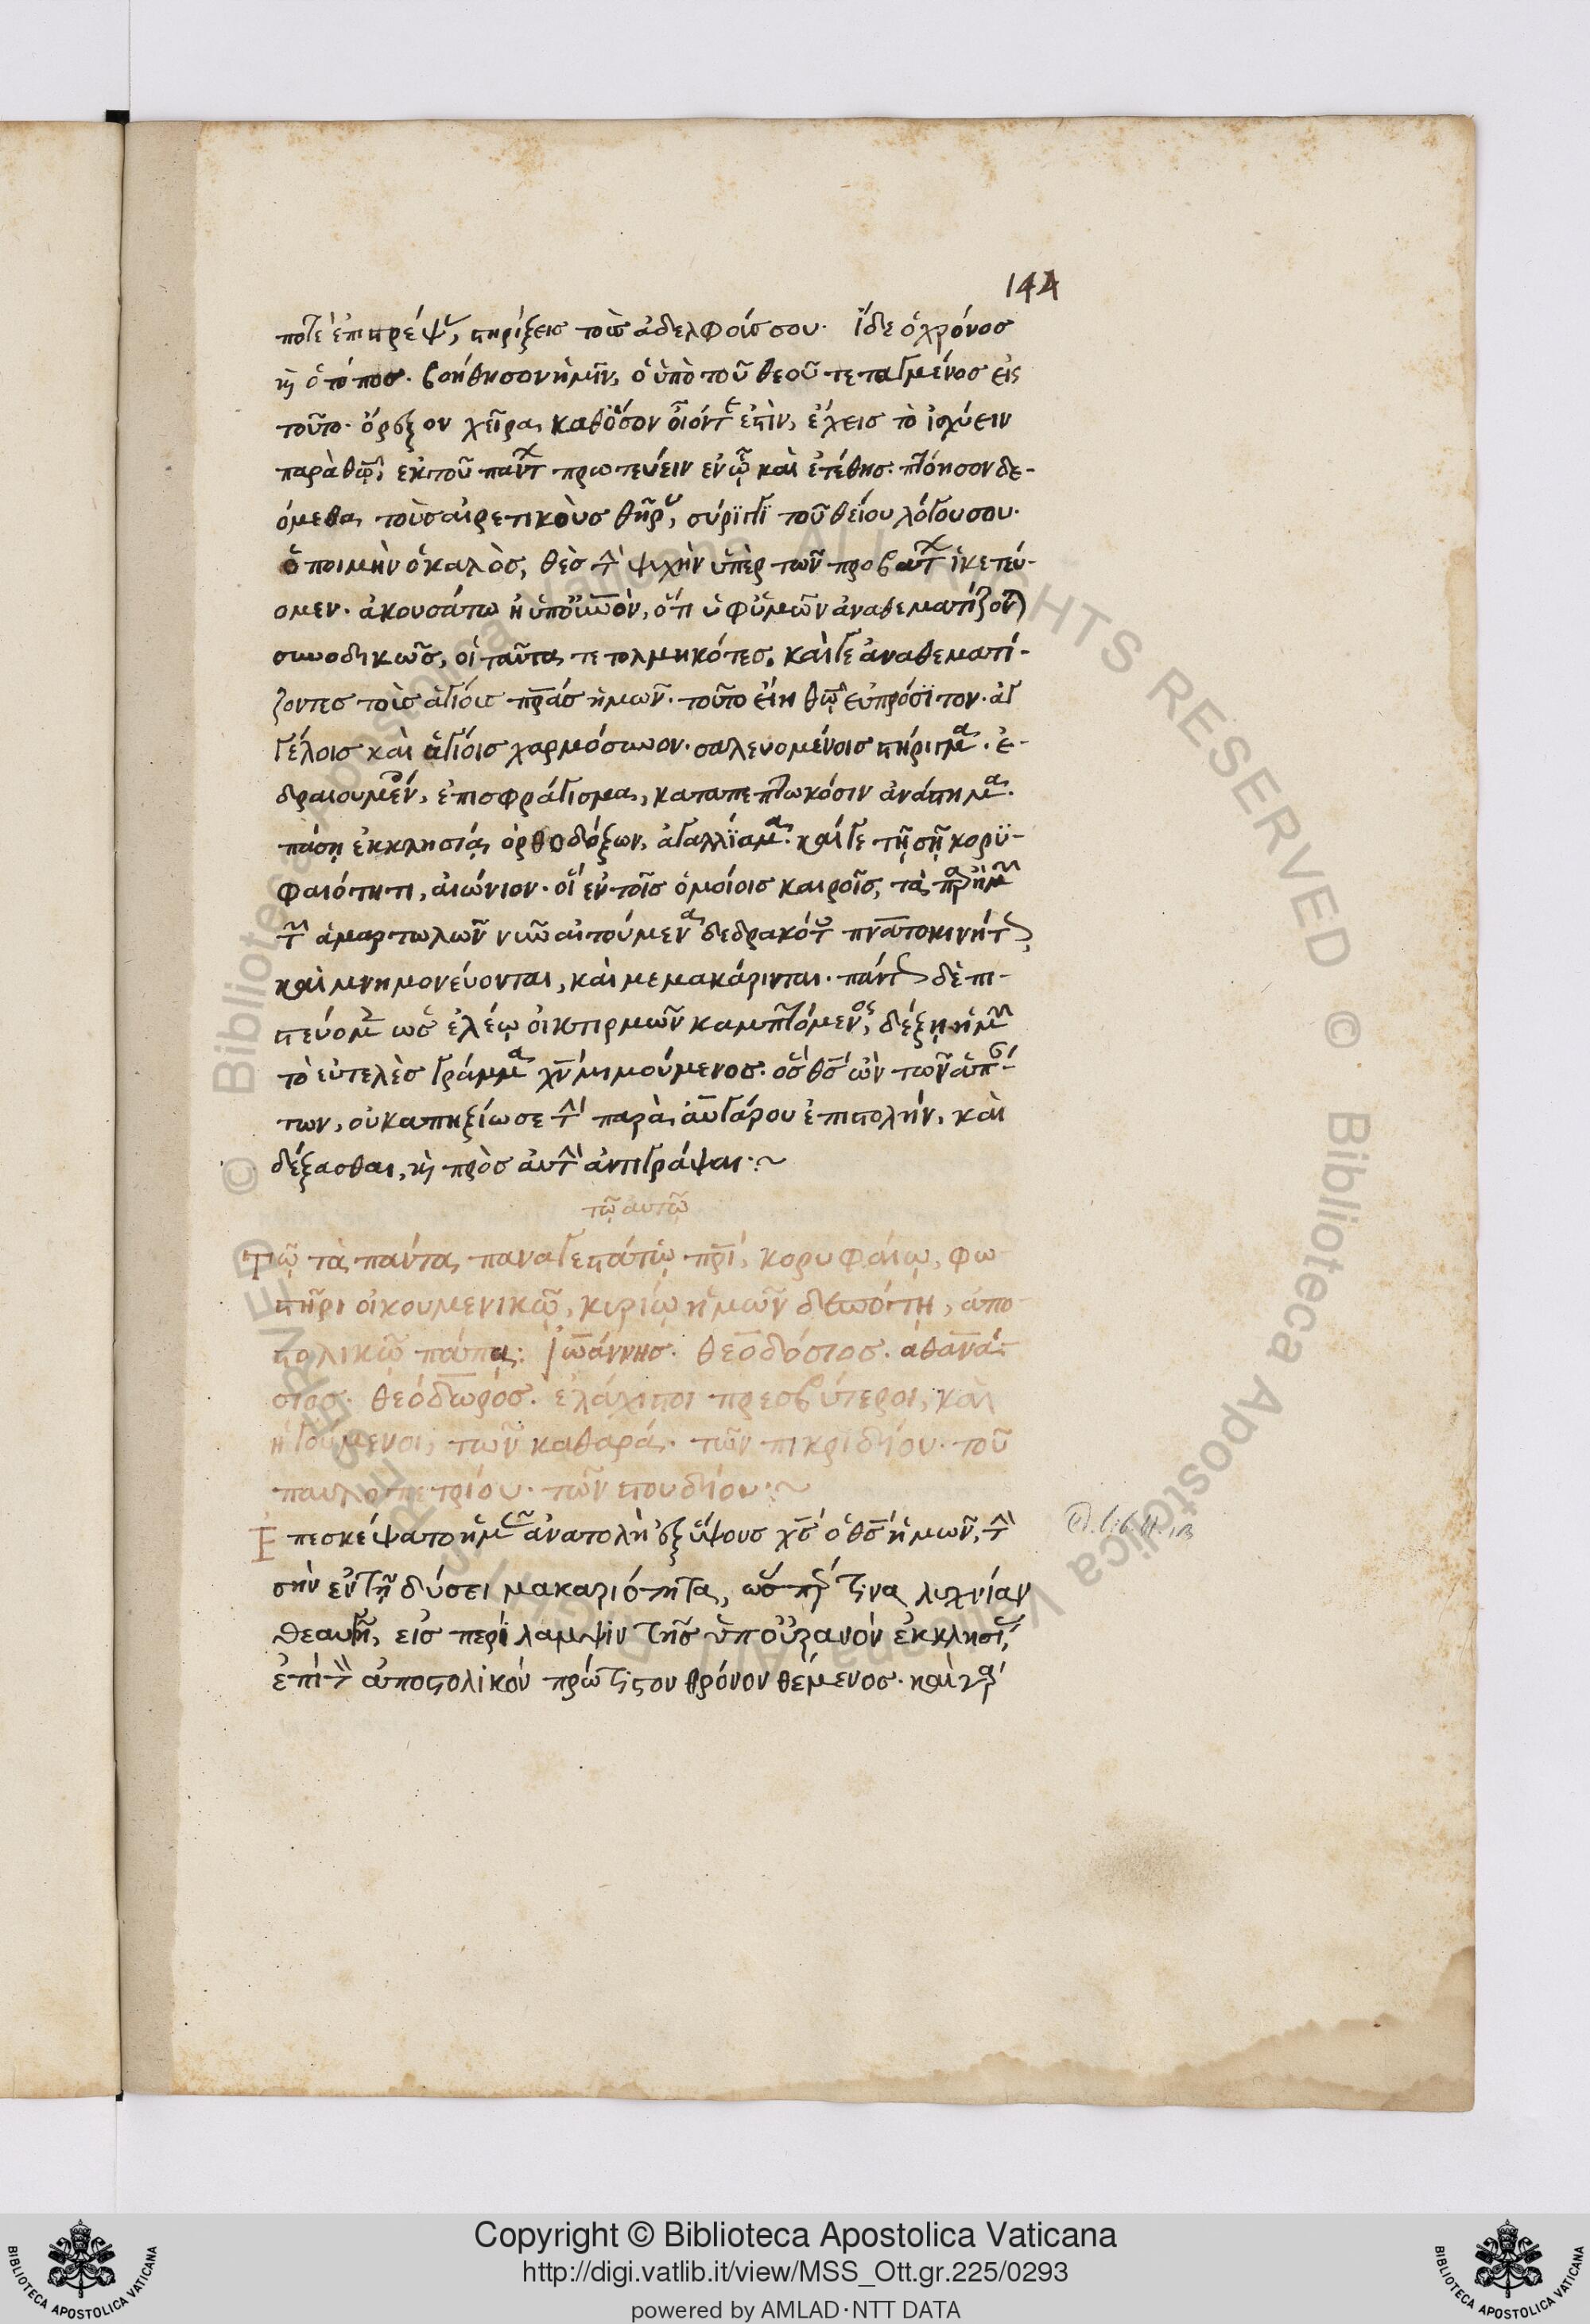 144
ποτὲ ἐπιστρέψας, στηρίξεις τοὺς ἀδελφούς σου. ἴδε ὁ χρόνος
καὶ ὁ τόπος. βοήθησον ἡμῖν, ὁ ὑπὸ τοῦ θεοῦ τεταγμένος εἰς
τοῦτο. ὄρεξον χεῖρα καθόσον οἷόντέ ἐστιν, ἔχεις τὸ ἰσχύειν
παρὰ θῶ, ἐκ τοῦ πάντων πρωτεύειν ἐν ᾧ καὶ ἐτέθης. πτόησον δε-
όμεθα τοὺς αἱρετικοὺς θῆρας, σύριγγι τοῦ θείου λόγου σου.
ὁ ποιμὴν ὁ καλὸς, θὲς τὴν ψυχὴν ὑπὲρ τῶν προβάτων ἱκετεύ-
ομεν. ἀκουσάτω ἡ ὑπ' οὐνὸν, ὅτι ὑφ' ὑμῶν ἀναθεματίζονται
συνοδικῶς, οἱ ταῦτα τετολμηκότες. καίγε ἀναθεματί-
ζοντες τοὺς ἁγίους πρας ἡμῶν. τοῦτο εἴη θῶ εὐπρόσιτον. ἀγ
γέλοις καὶ ἁγίοις χαρμόσυνον. σαλευομένοις στήριγμα. ἑ-
δραιουμένοις, ἐπισφράγισμα, καταπεπτωκόσιν ἀνάστημα.
πάσῃ ἐκκλησίᾳ ὀρθοδόξων, ἀγαλλίαμα. καίγε τῇ σῇ κορυ-
φαιότητι, αἰώνιον. οἱ ἐν τοῖς ὁμοίοις καιροῖς, τὰ παρ' ἡμῶν
τῶν ἁμαρτωλῶν νῦν αἰτούμενα δεδρακότες πνατοκινήτως
καὶ μνημονεύονται, καὶ μεμακάρισται. πάντως δὲ πι-
στεύομεν ὡς ἐλέῳ οἰκτιρμῶν καμπτόμενος, δέξῃ ἡμῶν
τὸ εὐτελὲς γράμμα χν μιμούμενος. ὃς θς ὢν τῶν ἁπάν-
των, οὐκ ἀπηξίωσε τὴν παρὰ αὐγάρου ἐπιστολὴν, καὶ
δέξασθαι, καὶ πρὸς αὐτὸν ἀντιγράψαι·~
τῷ αὐτῷ
Τῷ τὰ πάντα παναγεστάτῳ πρι, κορυφαίῳ, φω
στῆρι οἰκουμενικῷ, κυρίῳ ἡμῶν δεσπότῃ, ἀπο-
στολικῷ πάπᾳ: ἰωάννης. θεοδόσιος. ἀθανά-
σιος. θεόδωρος. ἐλάχιστοι πρεσβύτεροι, καὶ
ἡγούμενοι, τῶν καθαρά. τῶν πικριδίου. τοῦ
παυλοπετρίου. τῶν στουδίου·~
Ἐπεσκέψατο ἡμᾶς ἀνατολὴ ἐξ ὕψους χς ὁ θς ἡμῶν, τὴν
σὴν ἐν τῇ δύσει μακαριότητα, ὥσπερ τινα λυχνίαν
θεαυγῆ, εἰς περίλαμψιν τῆς ὑπ' οὐρανὸν ἐκκλησίας,
ἐπὶ τὸν ἀποστολικὸν πρώτιστον θρόνον θέμενος. καὶ γὰρ
Copyright © Biblioteca Apostolica Vaticana
http://digi.vatlib.it/view/MSS_Ott.gr.225/0293
powered by AMLAD·NTT DATA